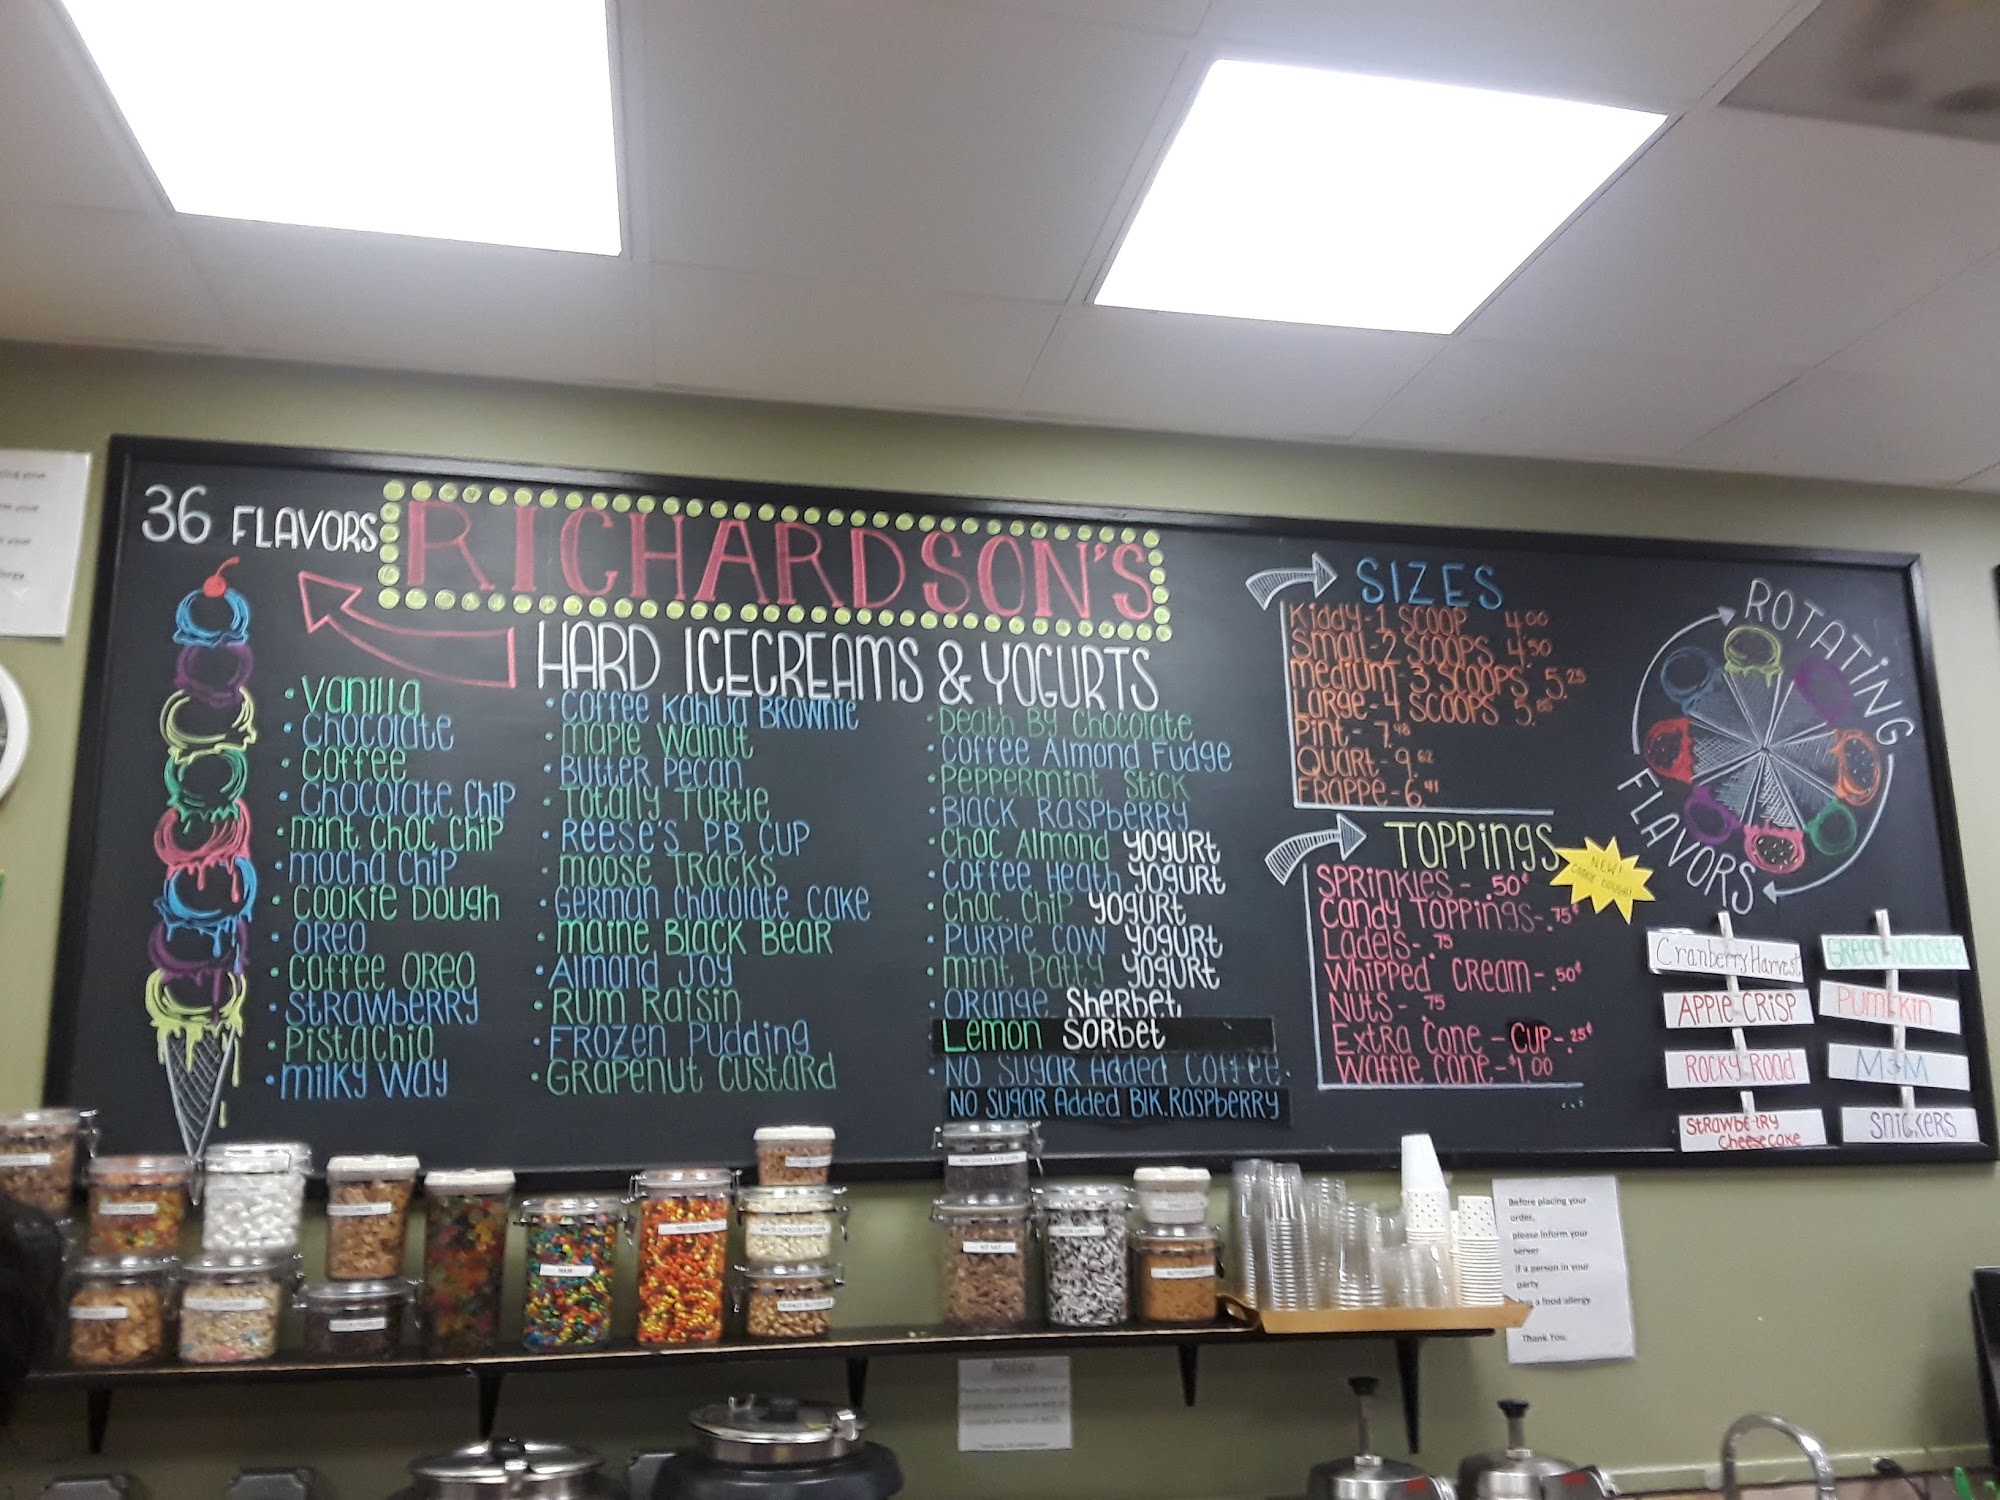 36 FLAVORS
RICHARDSON'S
HARD ICECREAMS & YOGURTS
• Vanilla
• Chocolate
• Coffee
• Chocolate Chip
• Mint Choc Chip
• Mocha Chip
• Cookie Dough
• Oreo
• Coffee Oreo
• Strawberry
• Pistachio
• Milky Way
• Coffee Kahlua Brownie
• Maple Walnut
• Butter Pecan
• Totally Turtle
• Reese's P.B. Cup
• Moose Tracks
• German Chocolate Cake
• Maine Black Bear
• Almond Joy
• Rum Raisin
• Frozen Pudding
• Grapenut Custard
• Death By Chocolate
• Coffee Almond Fudge
• Peppermint Stick
• Black Raspberry
• Choc Almond Yogurt
• Coffee Heath Yogurt
• Choc. Chip Yogurt
• Purple Cow Yogurt
• Mint Patty Yogurt
• Orange Sherbet
Lemon Sorbet
• No Sugar Added Coffee
No Sugar Added Blk. Raspberry
SIZES
Kiddy - 1 Scoop 4.00
Small - 2 Scoops 4.50
Medium - 3 Scoops 5.25
Large - 4 Scoops 5.85
Pint - 7.48
Quart - 9.62
Frappe - 6.41
TOPPINGS
NEW!
COOKIE DOUGH!
Sprinkles - .50¢
Candy Toppings - .75¢
Ladels - .75
Whipped Cream - .50¢
Nuts - .75
Extra Cone - Cup - .25¢
Waffle Cone - $1.00
ROTATING
FLAVORS
Cranberry Harvest
Apple Crisp
Rocky Road
Strawberry
Cheesecake
Green Monster
Pumpkin
M&M
Snickers
M&M
Before placing your
order,
please inform your
server
if a person in your
party
has a food allergy
Thank You
Notice